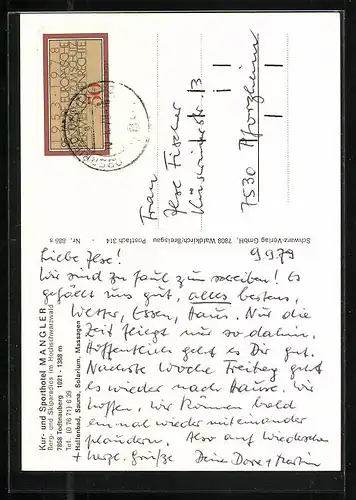 50
Frau
Ilse Fischer
7530 Pforzheim
Schwarz-Verlag GmbH, 7808 Waldkirch/Breisgau Postfach 314 Nr. 886 s
Kur- und Sporthotel MANGLER
Berg- und Skiparadies im Hochschwarzwald
7868 Todtnauberg 1021 - 1388 m
Tel. (0 76 71) 6 39
Hallenbad, Sauna, Solarium, Massagen
Liebe Ilse! 9.9.79
Wir sind zu faul zum schreiben! Es
gefällt uns gut, alles bestens,
Wetter, Essen, Haus. Nur die
Zeit fliegt nur so dahin.
Hoffentlich geht es Dir gut.
Nächste Woche Freitag geht
es wieder nach Hause. Wir
hoffen, wir können bald
einmal wieder miteinander
plaudern. Also auf Wiedersehen
+ herzl. Grüße Deine Dore + Martin